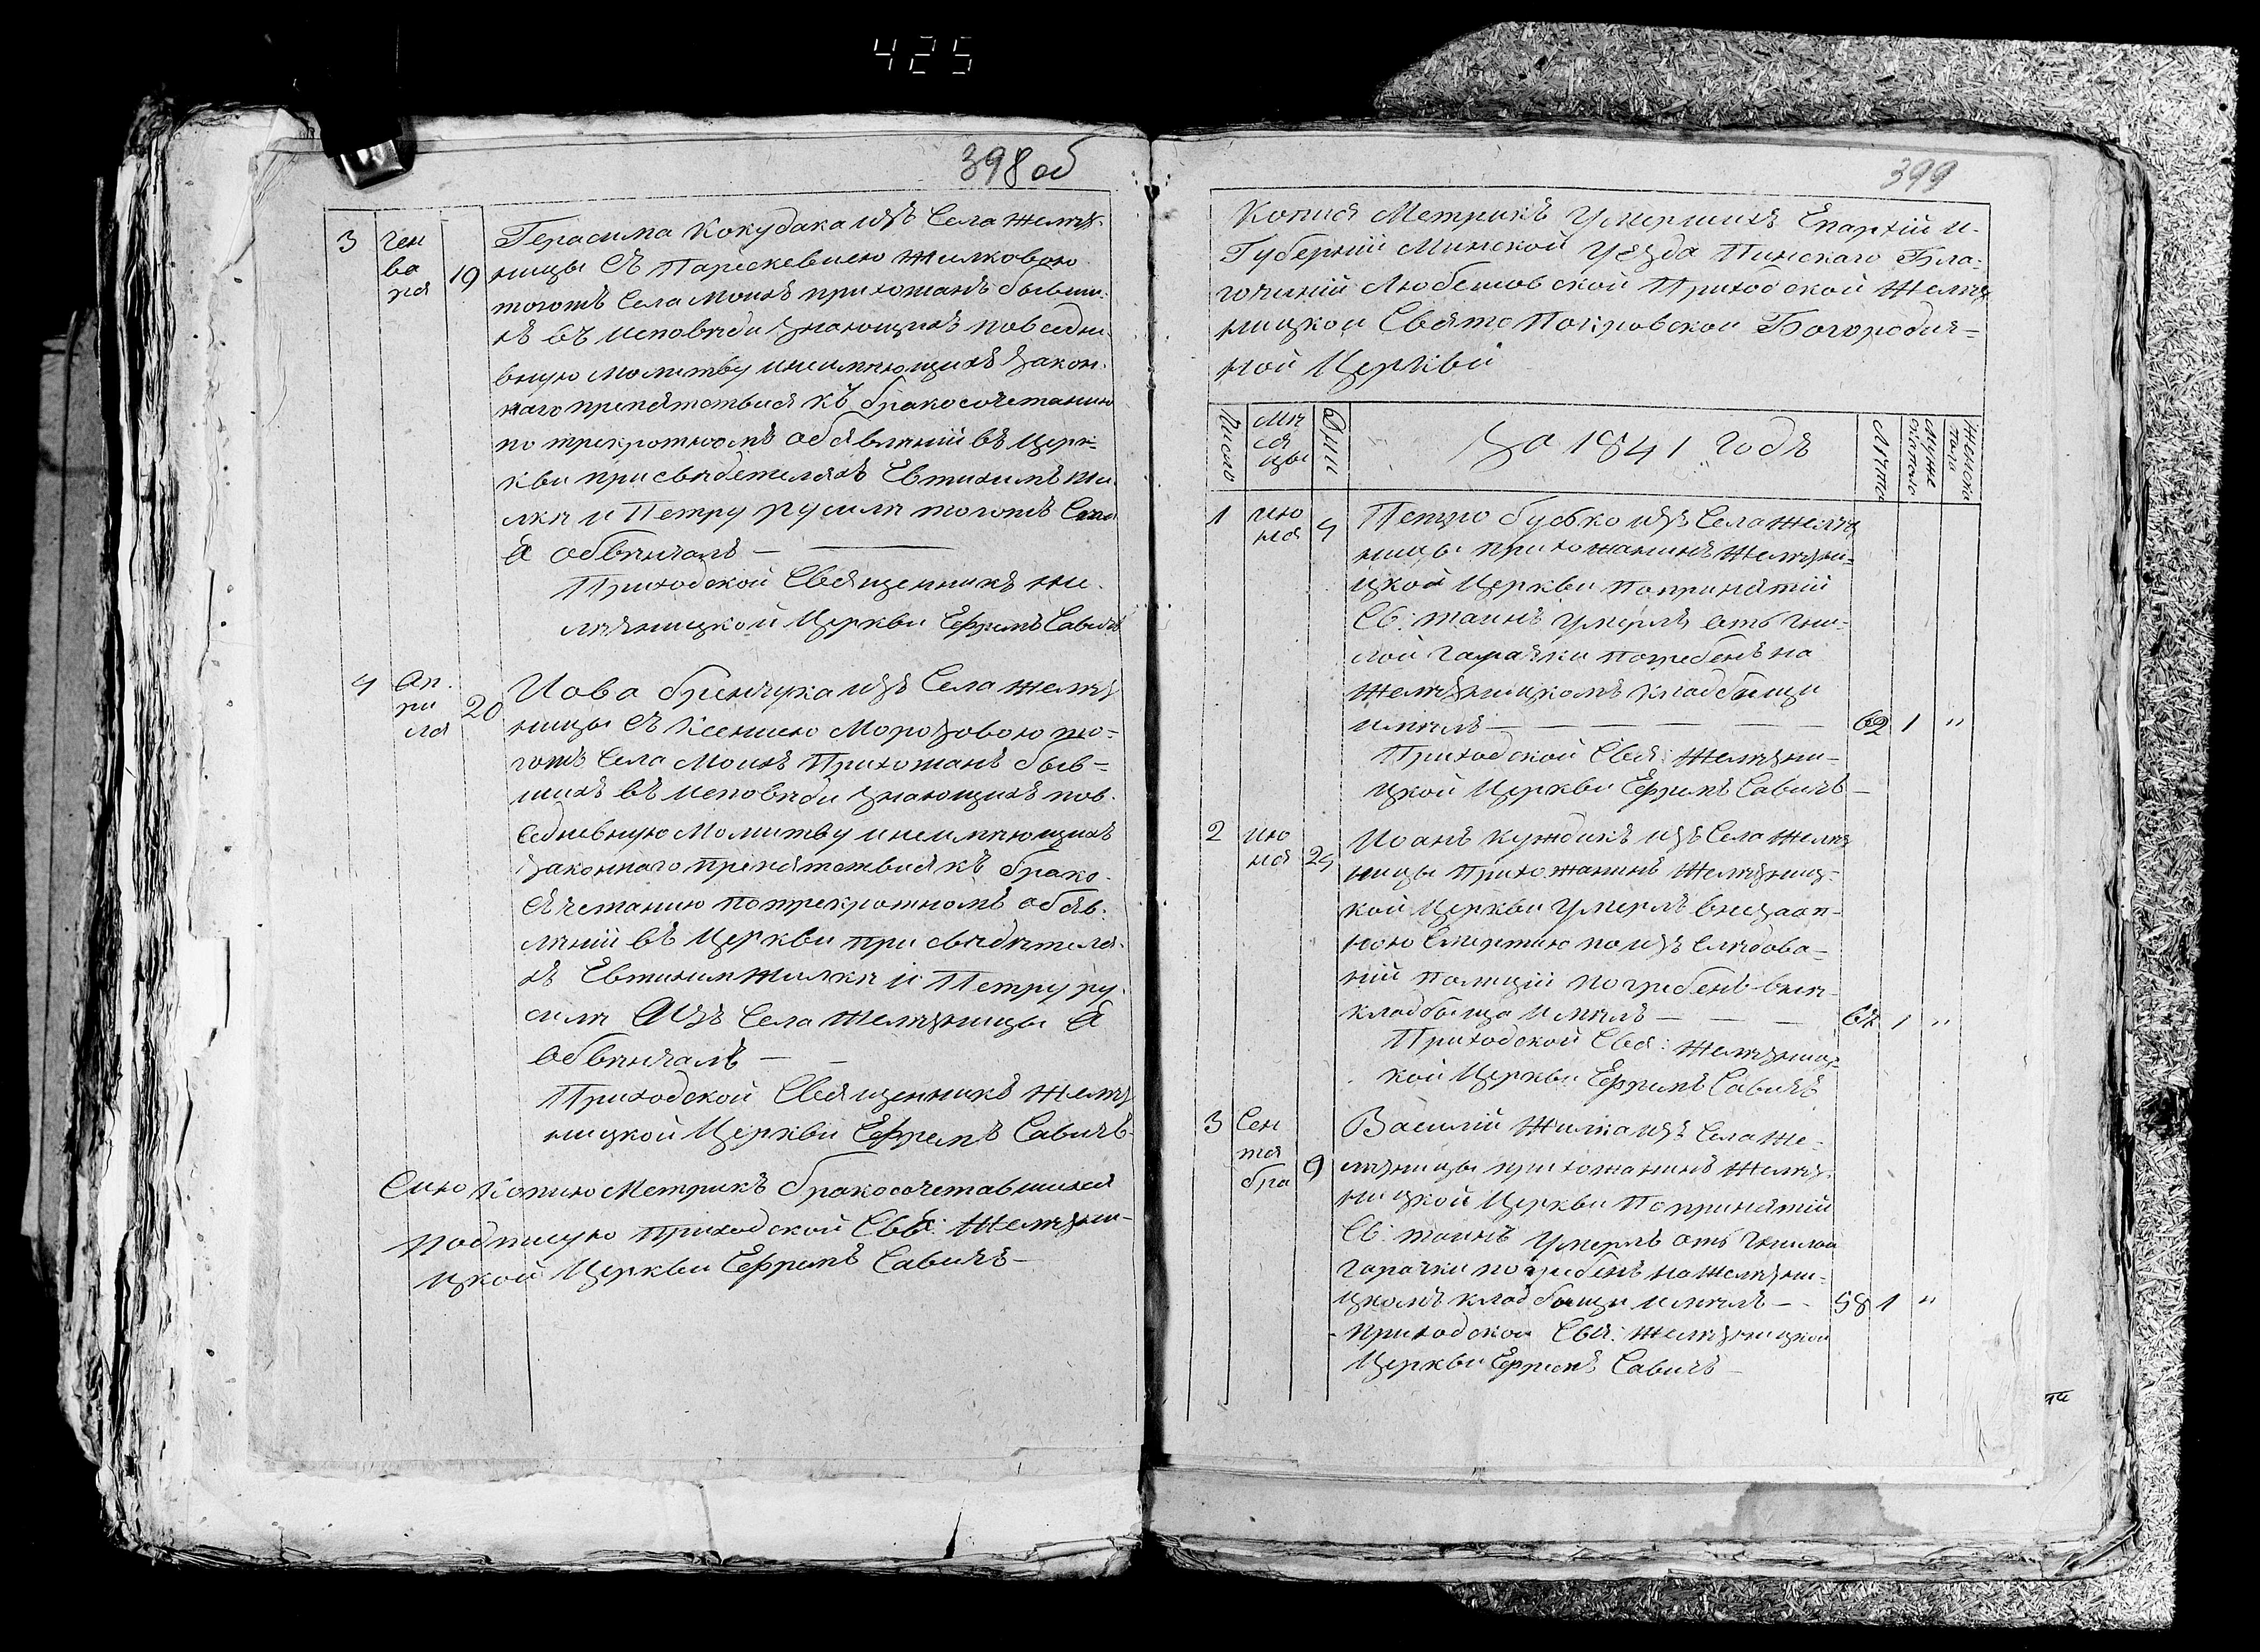 425
398 об
3 Ген
ва
ря 19
Герасима Кокудака изъ Села Желѣз-
ницы съ Параскевиею Жилковою
тогожъ Села моихъ прихожанъ бывши-
хъ въ исповѣди знающихъ повседне-
вную молитву инеимѣющихъ закон-
наго препятствия къ бракосочетанию
по трекротномъ обявлений въ Цер-
кви присвѣдетеляхъ Евтихимъ Жи-
лки и Петру русили тогожъ Села
я обвѣнчалъ —
Приходской Священникъ Же-
лѣзницкой Церкви Ефремъ Савичъ
4 Ап-
ри
ля 20
Иова бренчука изъ Села Желѣз
ницы съ Ксениею Морозовою то-
гожъ Села Моихъ Прихожанъ быв-
шихъ въ исповѣди знающихъ пов-
седневную Молитву инеимѣющихъ
законнаго препятствия къ брако-
сочетанию потрекротномъ обяв-
лѣний въ Церкви при свѣдѣтеля-
хъ Евтихим Жилки и Петру ру-
сили изъ Села Желѣзницы я
обвѣнчалъ —
Приходской Священникъ Желѣз
ницкой Церкви Ефремъ Савичъ
Сию Копию Метрикъ бракосочетавшихся
подписую приходской Свя: Желѣзни-
цкой Церкви Ефремъ Савичъ —
399
Копия Метрикъ Умершихъ Епархій и
Губерній Минской уезда Пинскаго Бла-
гочиній Любешовской Приходской Желѣз
ницкой Свято Покровской Богородич-
ной Церкви
Число Мѣ
ся
цы Дни За 1841 годъ Лѣта Муже
ска пола Женска
пола
1 Ию
ня 4
Петро бусько изъ Села Желѣз
ницы прихожанинъ Желѣзни-
цкой Церкви попринятій
Св: таинъ умерлъ отъ гни-
лой гарачки погребенъ на
Желѣзницкомъ кладбыщи
имѣлъ — 62 1 "
Приходской Свя: Желѣзни-
цкой Церкви Ефремъ Савичъ —
2 Ию
ня 24
Иоанъ Куждикъ изъ Села Желѣз
ницы прихожанинъ Желѣзниц-
кой Церкви умерлъ внезап-
ною Смертию по изъ слѣдова-
ній полицій погребенъ внѣ
кладбыща имѣлъ — 1 "
Приходской Свя: Желѣзниц-
кой Церкви Ефремъ Савичъ
3 Сен
тя
бра 9
Василій Жилка изъ Села Же-
лѣзницы прихожанинъ Желѣз-
ницкой Церкви Попринятій
Св: таинъ умерлъ отъ гнилой
гарачки погребенъ на Желѣзни-
цкомъ кладбыщи имѣлъ — 58 1 "
приходской Свя: Желѣзницкой
Церкви Ефремъ Савичъ —